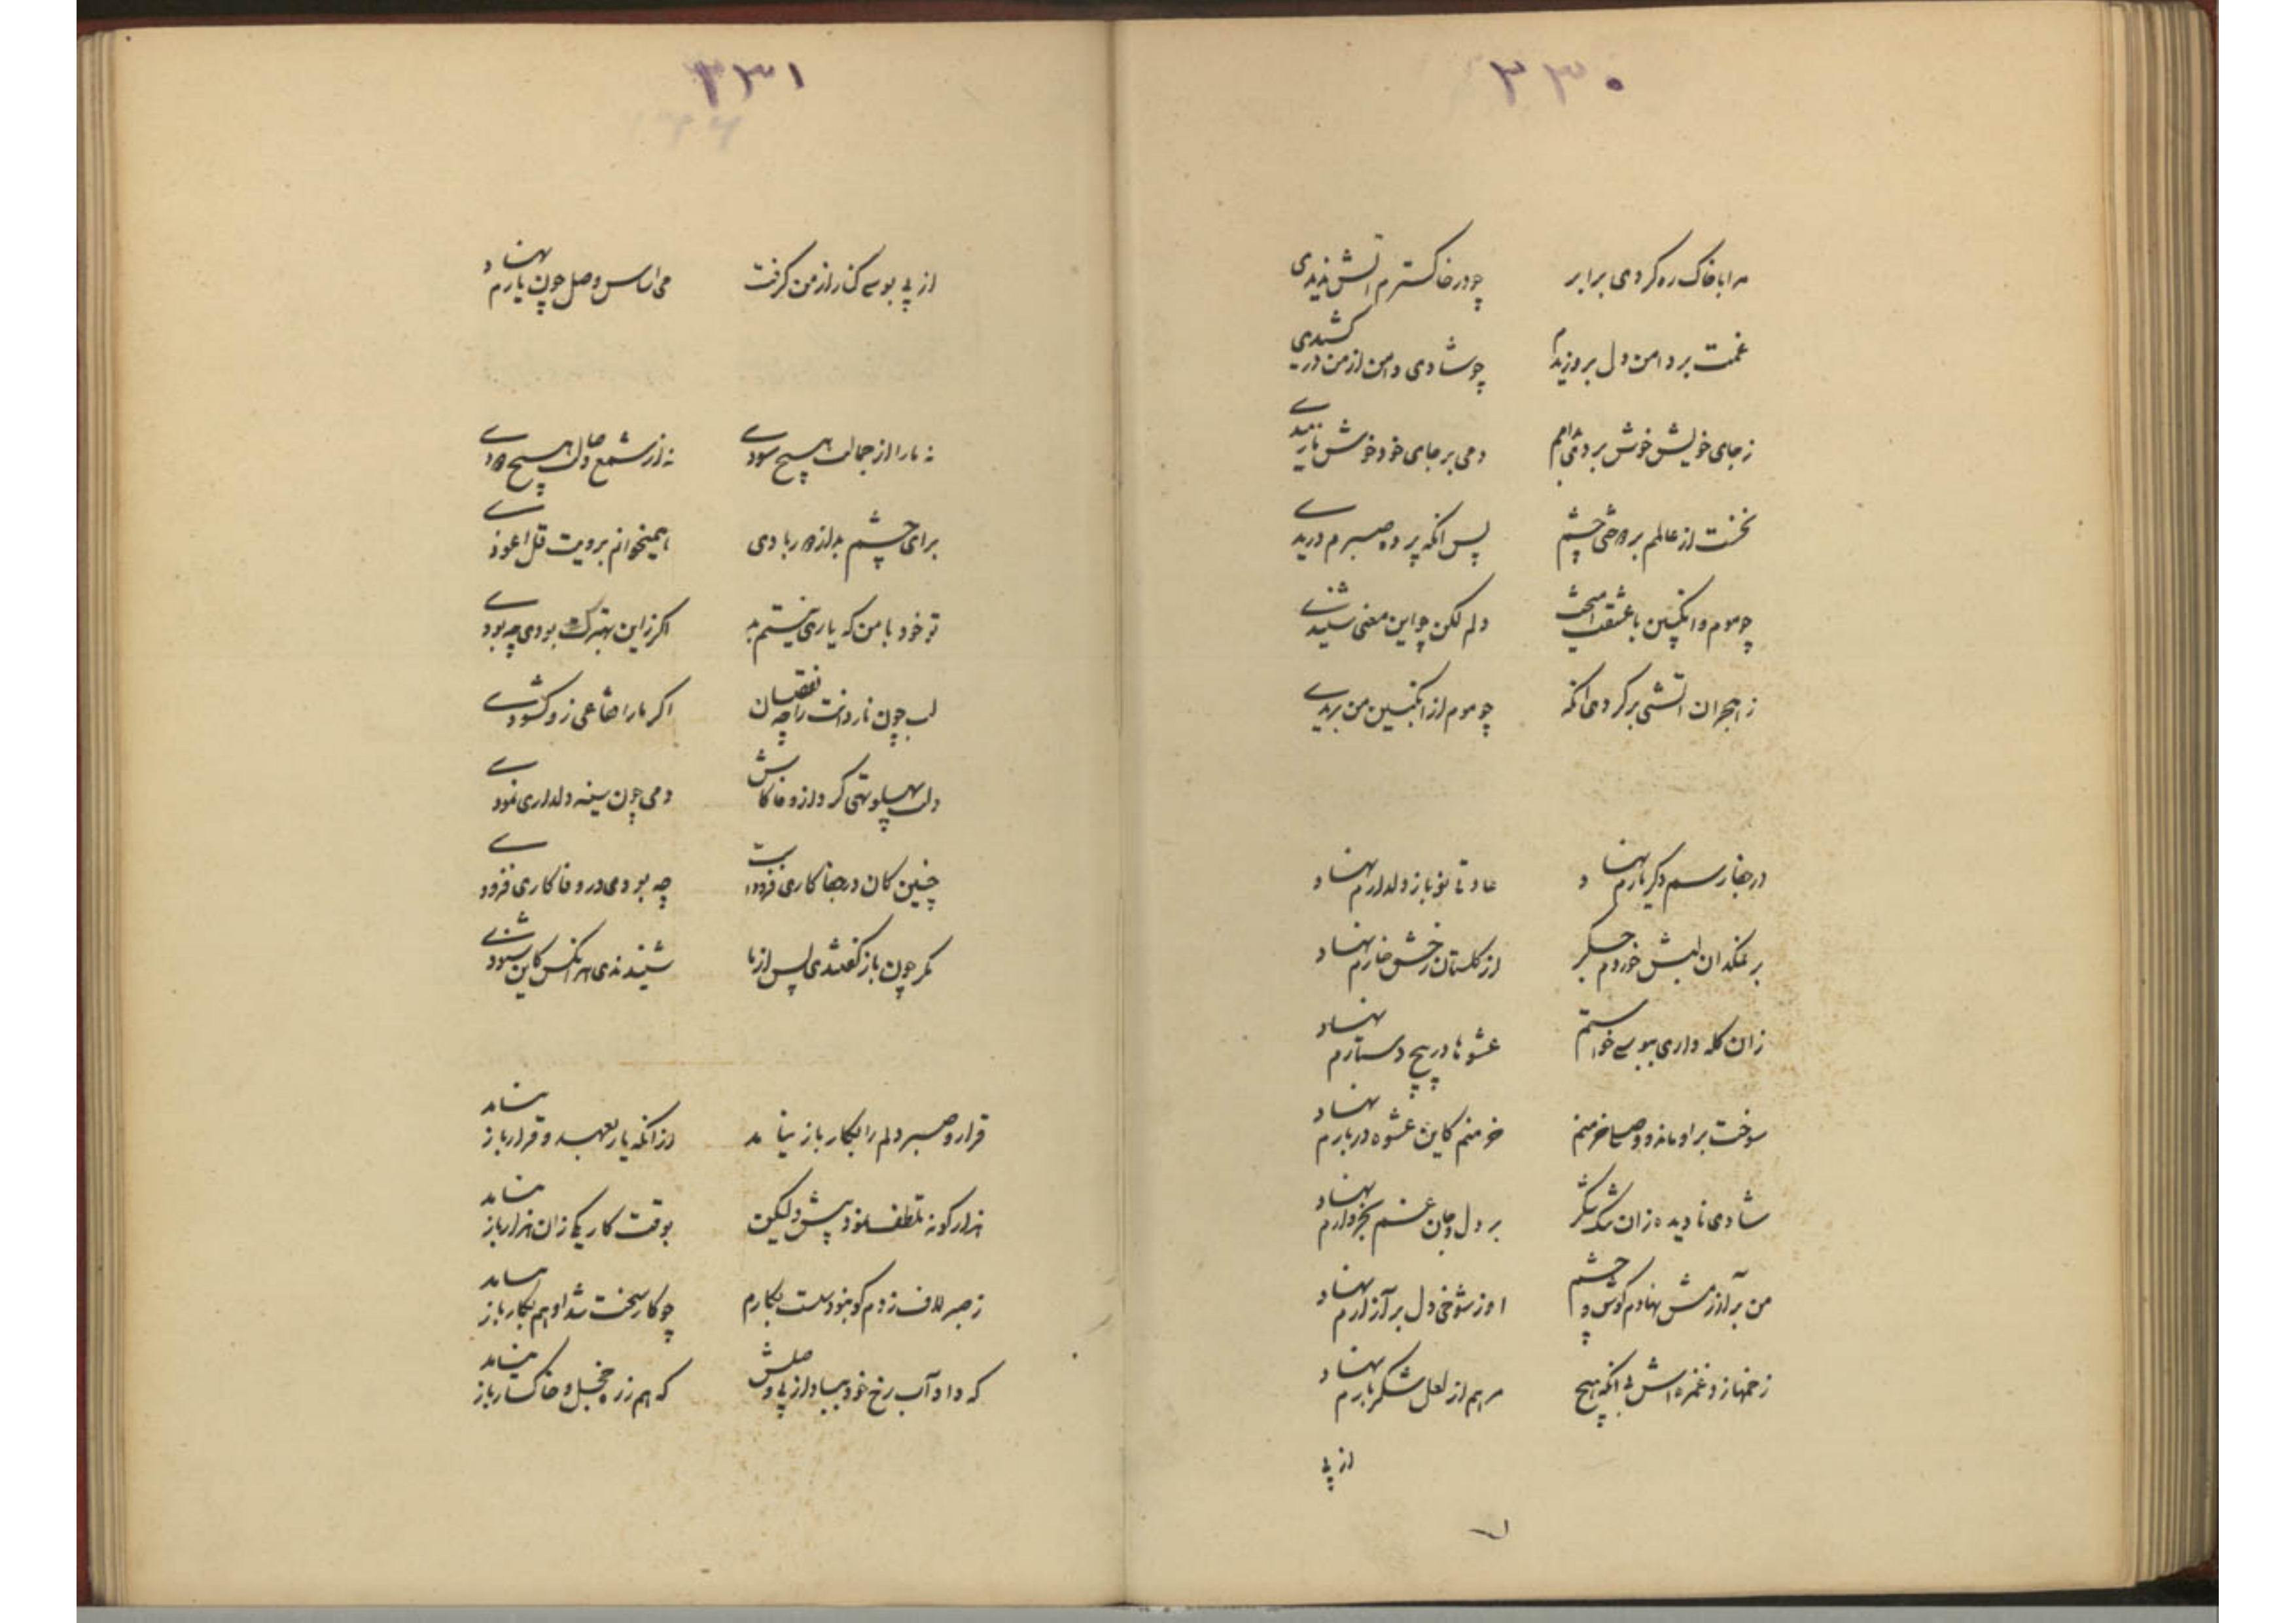 ۳۳۰
مرا با خاک ره کردی برابر چو در خاکسترم آتش ندیدی
غمت بر دامن دل بردوزیدم چو شادی دامن از من در کشیدی
ز جای خویش خوش بردی دمی بر جای خود خوش نارمیدی
نخست از عالمم بردوختی چشم پس آنگه پرده صبرم دریدی
چو موم و انگبین با عشقت آمیخت دلم لکن چو این معنی شنیدی
ز هجران آتشی بر کردی آنگه چو موم از انگبین من بریدی
در جفا رسم دگر یارم نهاد عادتی نو باز دلدارم نهاد
بر نمکدان لبش خوردم جگر از گلستان رخش خارم نهاد
زان کله داری ببوسی خواستم عشوها در پیچ دستارم نهاد
سوخت بر او ماند و خرمنم خرمنم کاین عشوه در بارم نهاد
شادی نادیده زان تنگ شکر بر دل و جان غم بخروارم نهاد
من بر آزرمش نهادم گوش و چشم او ز شوخی دل بر آزارم نهاد
زخمها زد غمزه اش بی آنکه هیچ مرهم از لعل شکربارم نهاد
از پی
۳۳۱
از پی بوسی کنار از من گرفت می اساس وصل چون یارم نهاد
نه ما را از جمالت هیچ سودی نه از شمع وصالت هیچ دودی
برای چشم بد از دور بادی همیخوانم برویت قل اعوذی
تو خود با من که یاری نیستم بد اگر زین بهترک بودی چه بودی
لب چون ناردانت را چه نقصان اگر ما را فقاعی زو گشودی
دلت پهلو تهی کرد از وفا کاش دمی چون سینه دلداری نمودی
چنین کان در جفا کاری فزودست چه بودی در وفا کاری فزودی
مگر چون باز گفتندی پس از ما شنیدندی هر آنکس کاین شنودی
قرار و صبر دلم را بکار باز نیامد از آنکه یار بعهد و قرار باز نیامد
هزار گونه تلطف نمود پیش ولیکن بوقت کار یکی زان هزار باز نیامد
ز صبر لاف زدم کو بنود سست بکارم چو کار سخت شد او هم بکار باز نیامد
که داد آب رخ خود بباد از پی وصلش که هم ز ره خجل و خاکسار باز نیامد